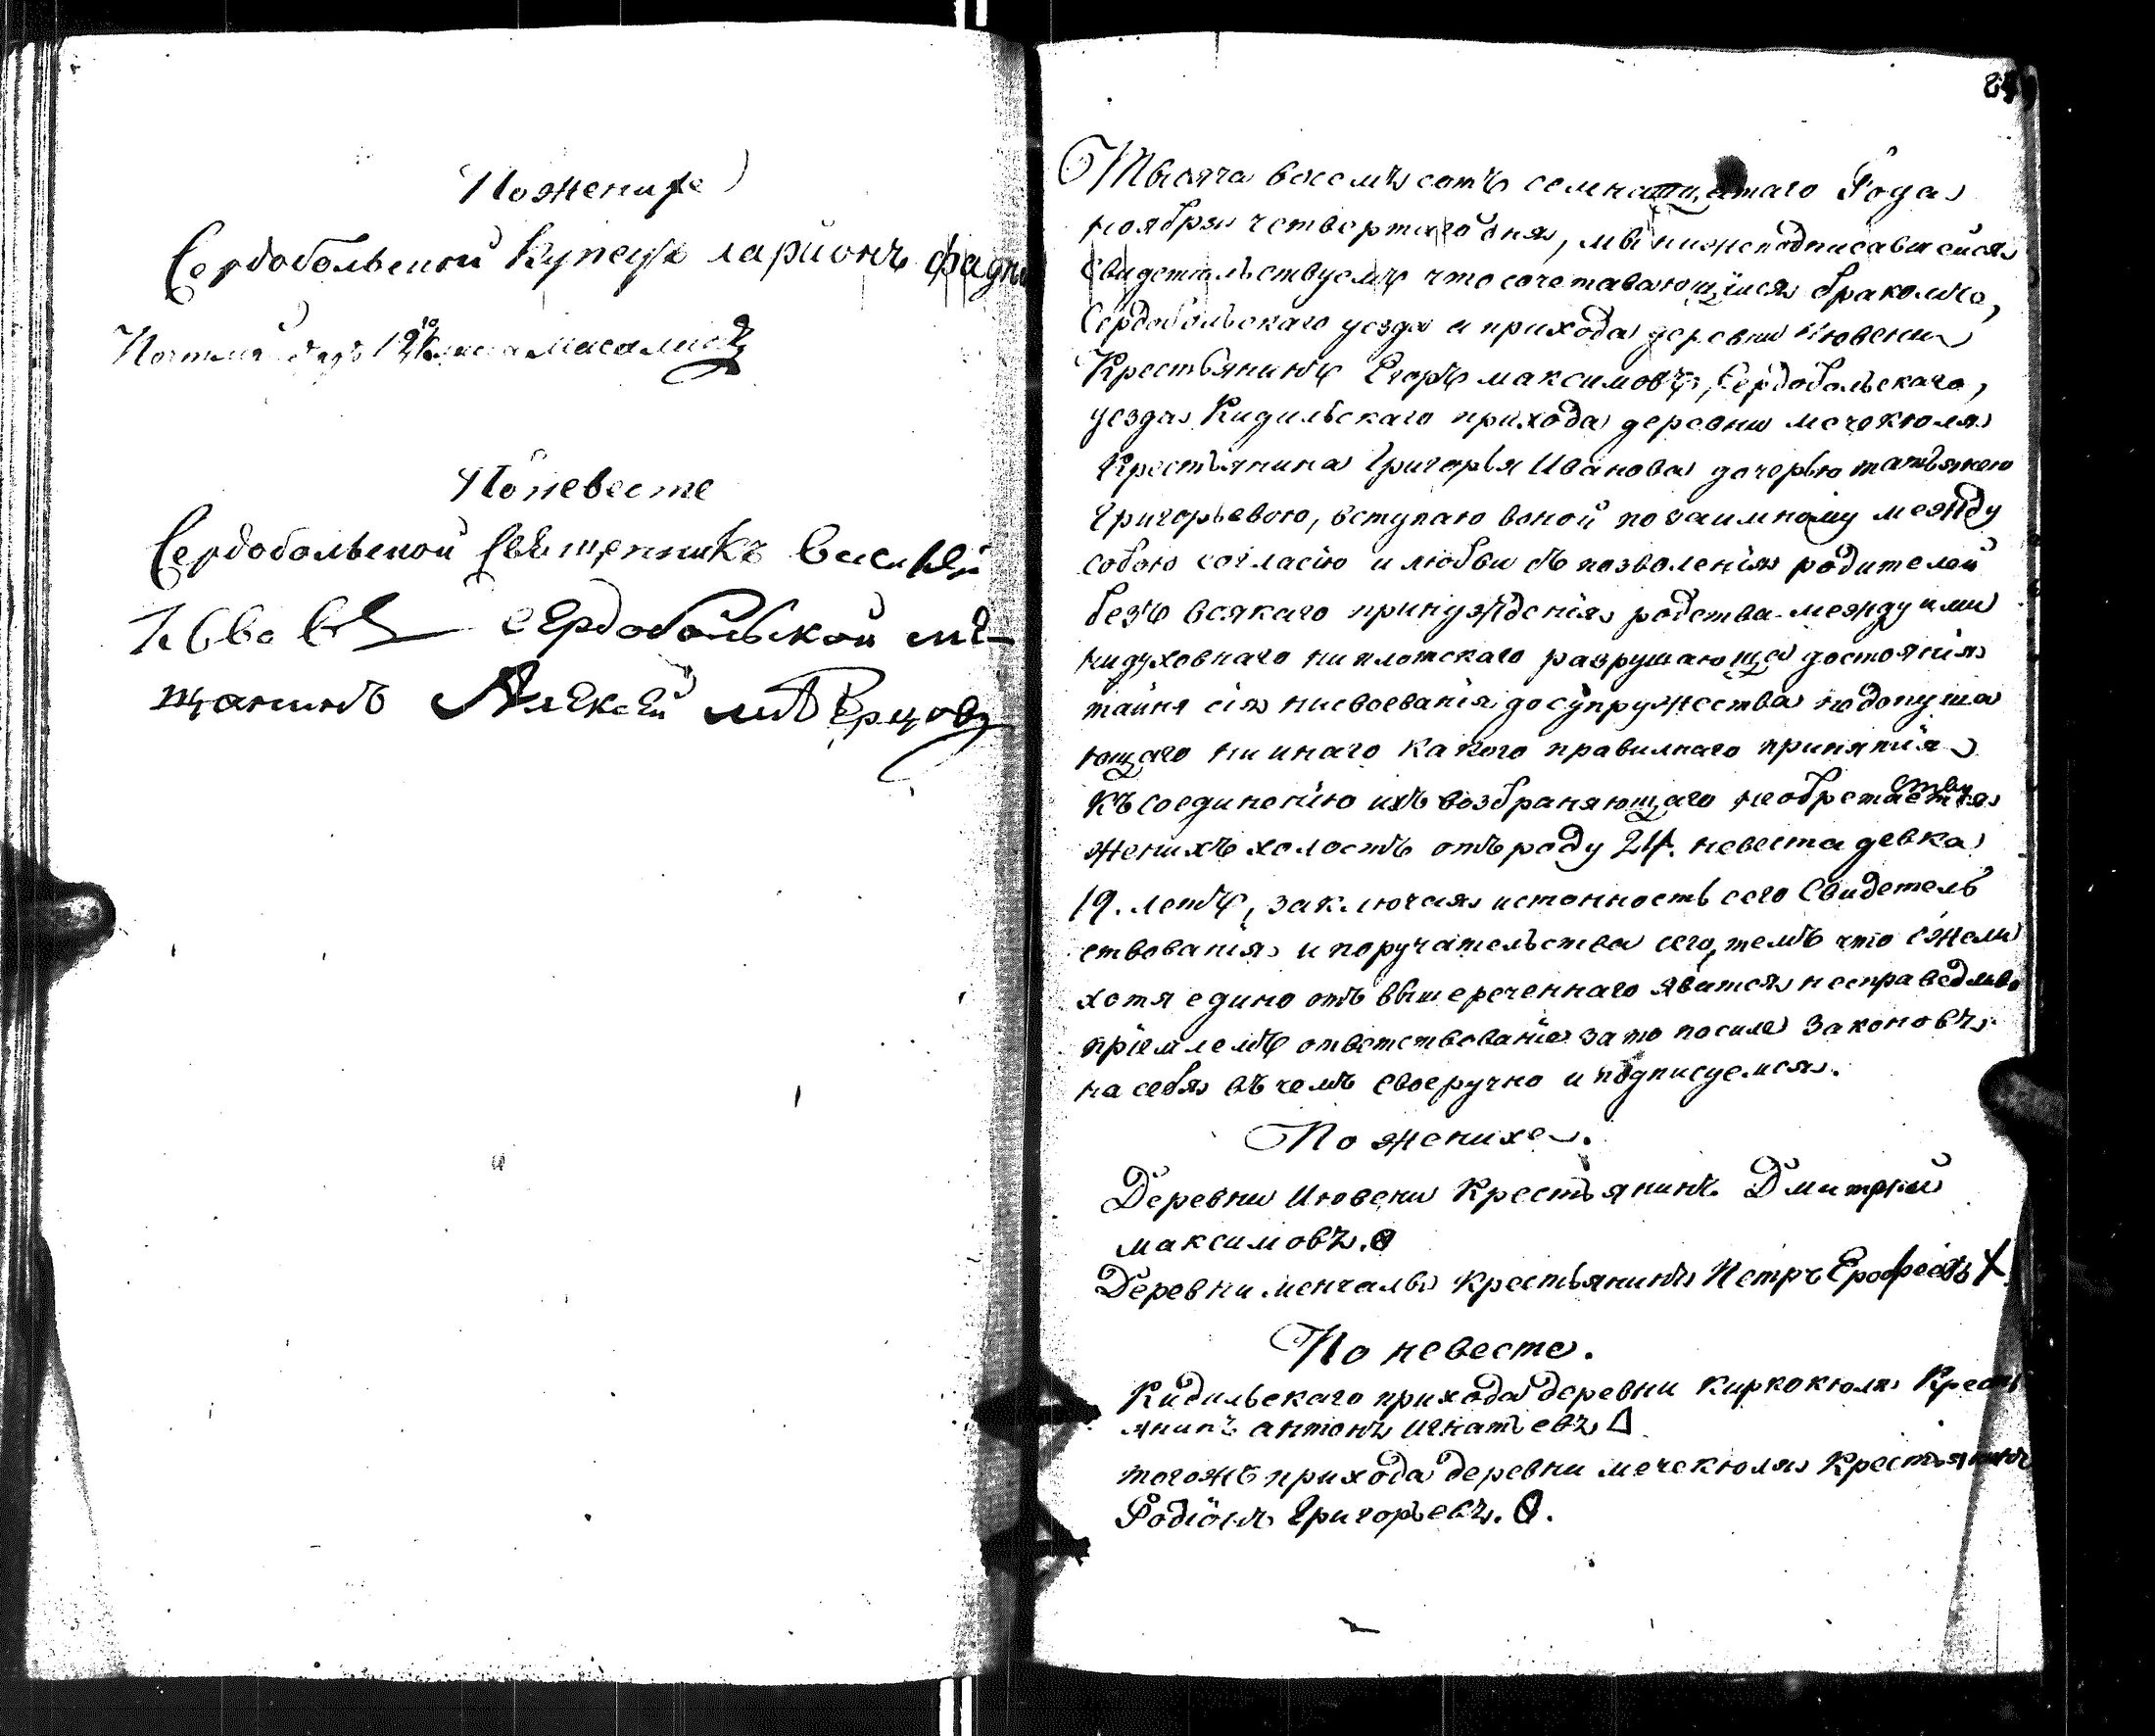 По женихе
Сердобольской Купецъ ларионъ фадѣ
12 класса
По невесте
Сердобольской Священникъ василей
Сердобольской мѣ
щанинъ Алѣксѣй
Тысяча восемь сотъ семнатцатаго Года
ноября четвертаго дня, мы нижеподписавшейся
свидетельствуемъ что сочетавающийся бракомъ,
Сердобольскаго уезда и прихода деревни Иювени
Крестьянинъ Егоръ максимовъ, Сердобольскаго,
уезда Кидильскаго прихода деревни мечекюля
Крестьянина Григорья Иванова дочерью татьяною
Григорьевою, вступаю воной повзаимному между
собою согласию и любви съ позволения родителей
безъ всякаго принуждения, родства между ими
нидуховнаго ниплотскаго разрушающа достояния
тайны сия нисвоевания досупружества недопуша
ющаго ни инаго какого правилнаго принятия
Къ соединению ихъ возбраняющаго необретается
женихъ холостъ отъ роду 24. невеста девка
19. летъ, заключая истонность сего Свидетель
ствования и поручательства сего, темъ что ежели
хотя едино отъ вышереченнаго явится несправедливо
приемлемъ ответствование за то посиле законовъ
на себя въ чемъ своеручно и подписуемся.
По женихе.
Деревни Иювени Крестьянинъ Дмитрий
максимовъ.
Деревни менчалы крестьянинъ Петръ Ерофеевъ X.
По невесте.
Кидильскаго прихода деревни киркокюля Кресть
янинъ антонъ Игнатьевъ Δ
тогожъ прихода деревни мечекюля Крестьянинъ
Родионъ Григорьевъ. O.